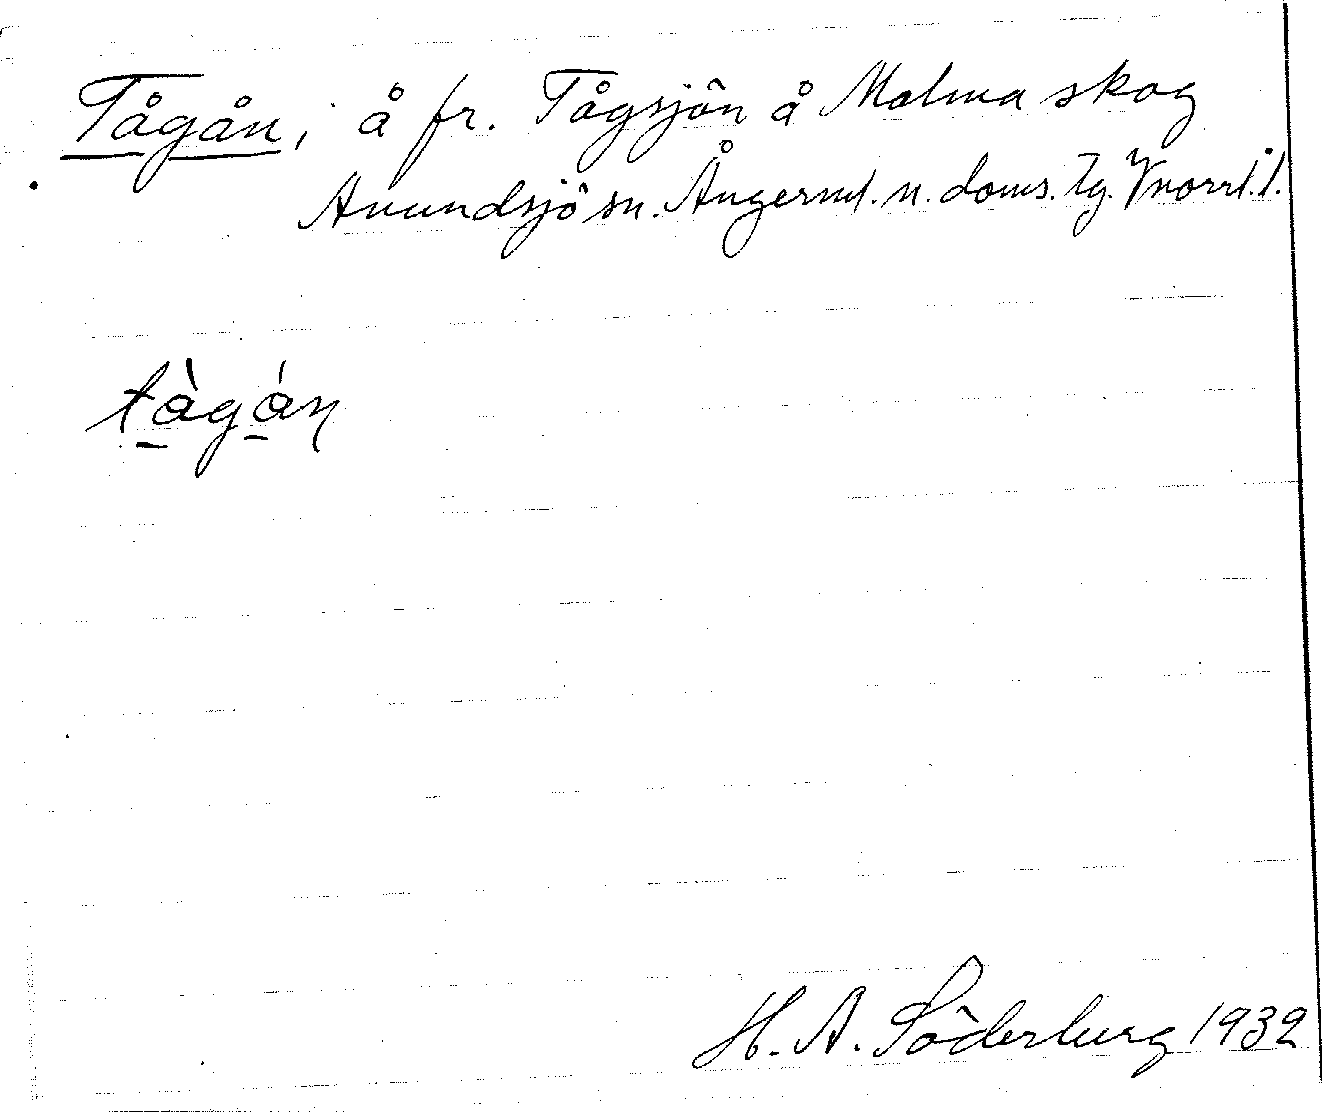 Tågån, å fr. Tågsjön å Malma skog
Anundsjö sn. Ångerml. n. doms. tg. Vnorrl. l.
tàgán
H. A. Söderberg 1932